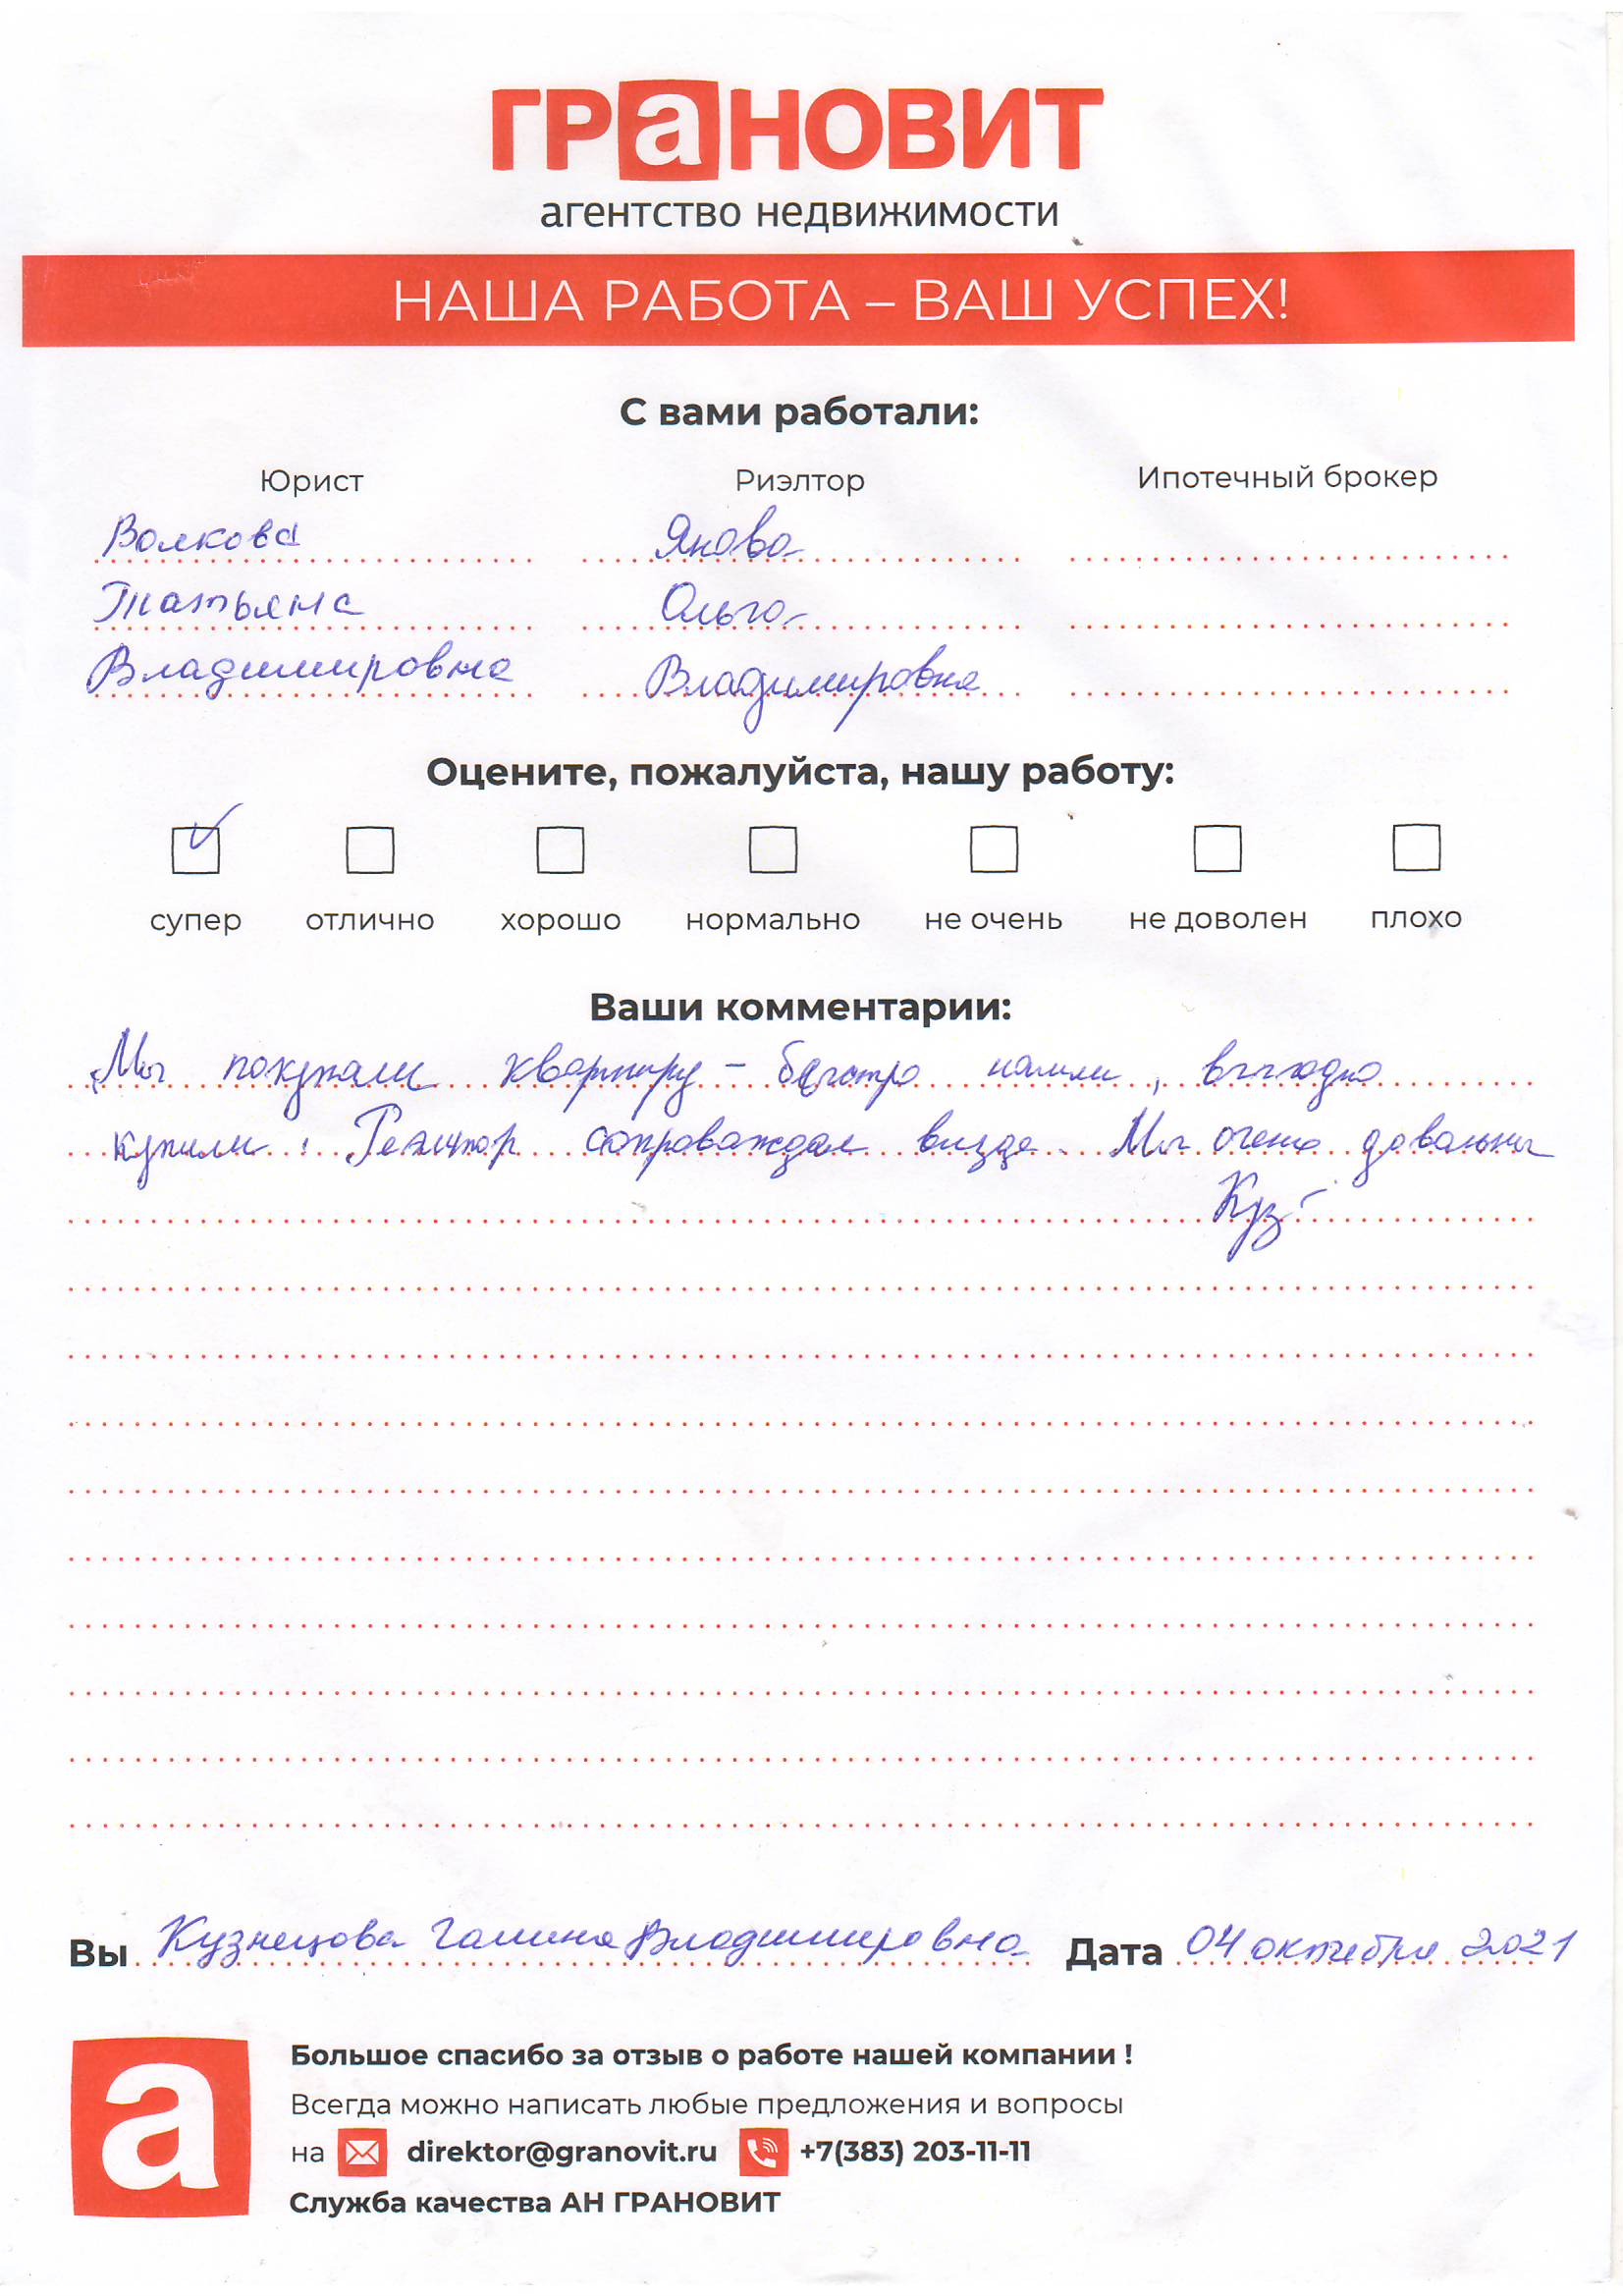 ГРаНОВИТ
агентство недвижимости
НАША РАБОТА – ВАШ УСПЕХ!
С вами работали:
Юрист Риэлтор Ипотечный брокер
Волкова Янова
Татьяна Ольга
Владимировна Владимировна
Оцените, пожалуйста, нашу работу:
супер отлично хорошо нормально не очень не доволен плохо
Ваши комментарии:
Мы покупали квартиру – быстро нашли, выгодно
купили. сопроваждал везде. Мы очень довольны
Куз
Вы Кузнецова Галина Владимировна Дата 04 октября 2021
а
Большое спасибо за отзыв о работе нашей компании !
Всегда можно написать любые предложения и вопросы
на direktor@granovit.ru +7(383) 203-11-11
Служба качества АН ГРАНОВИТ